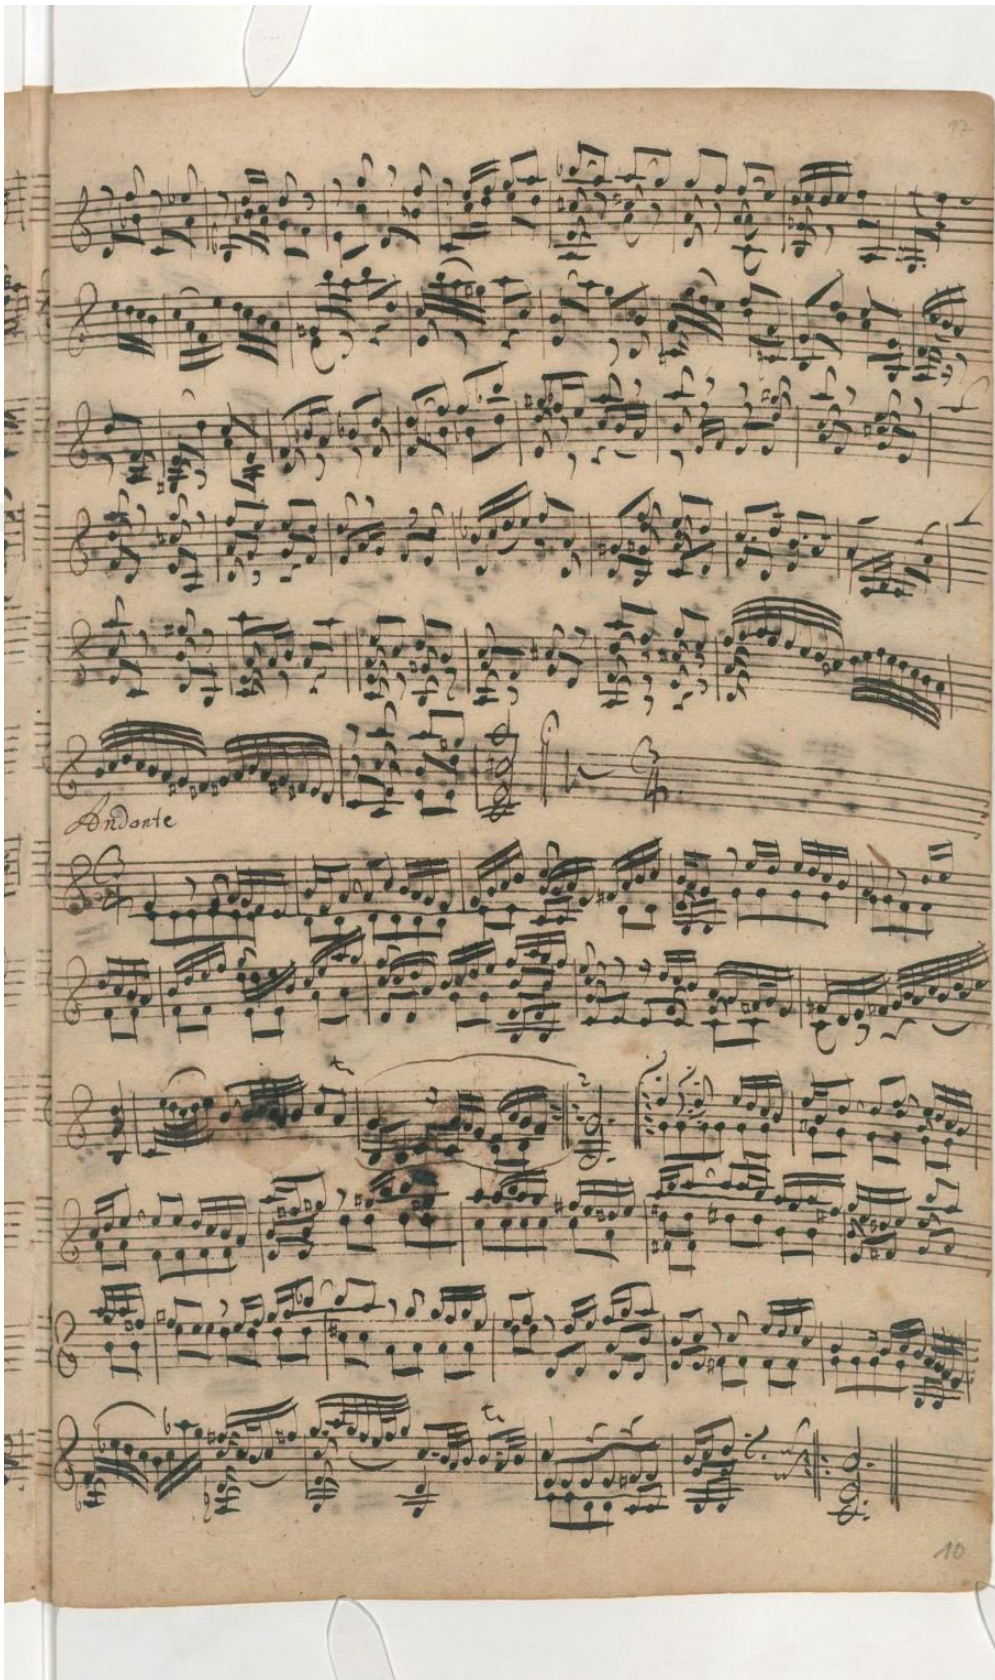 Andante
10